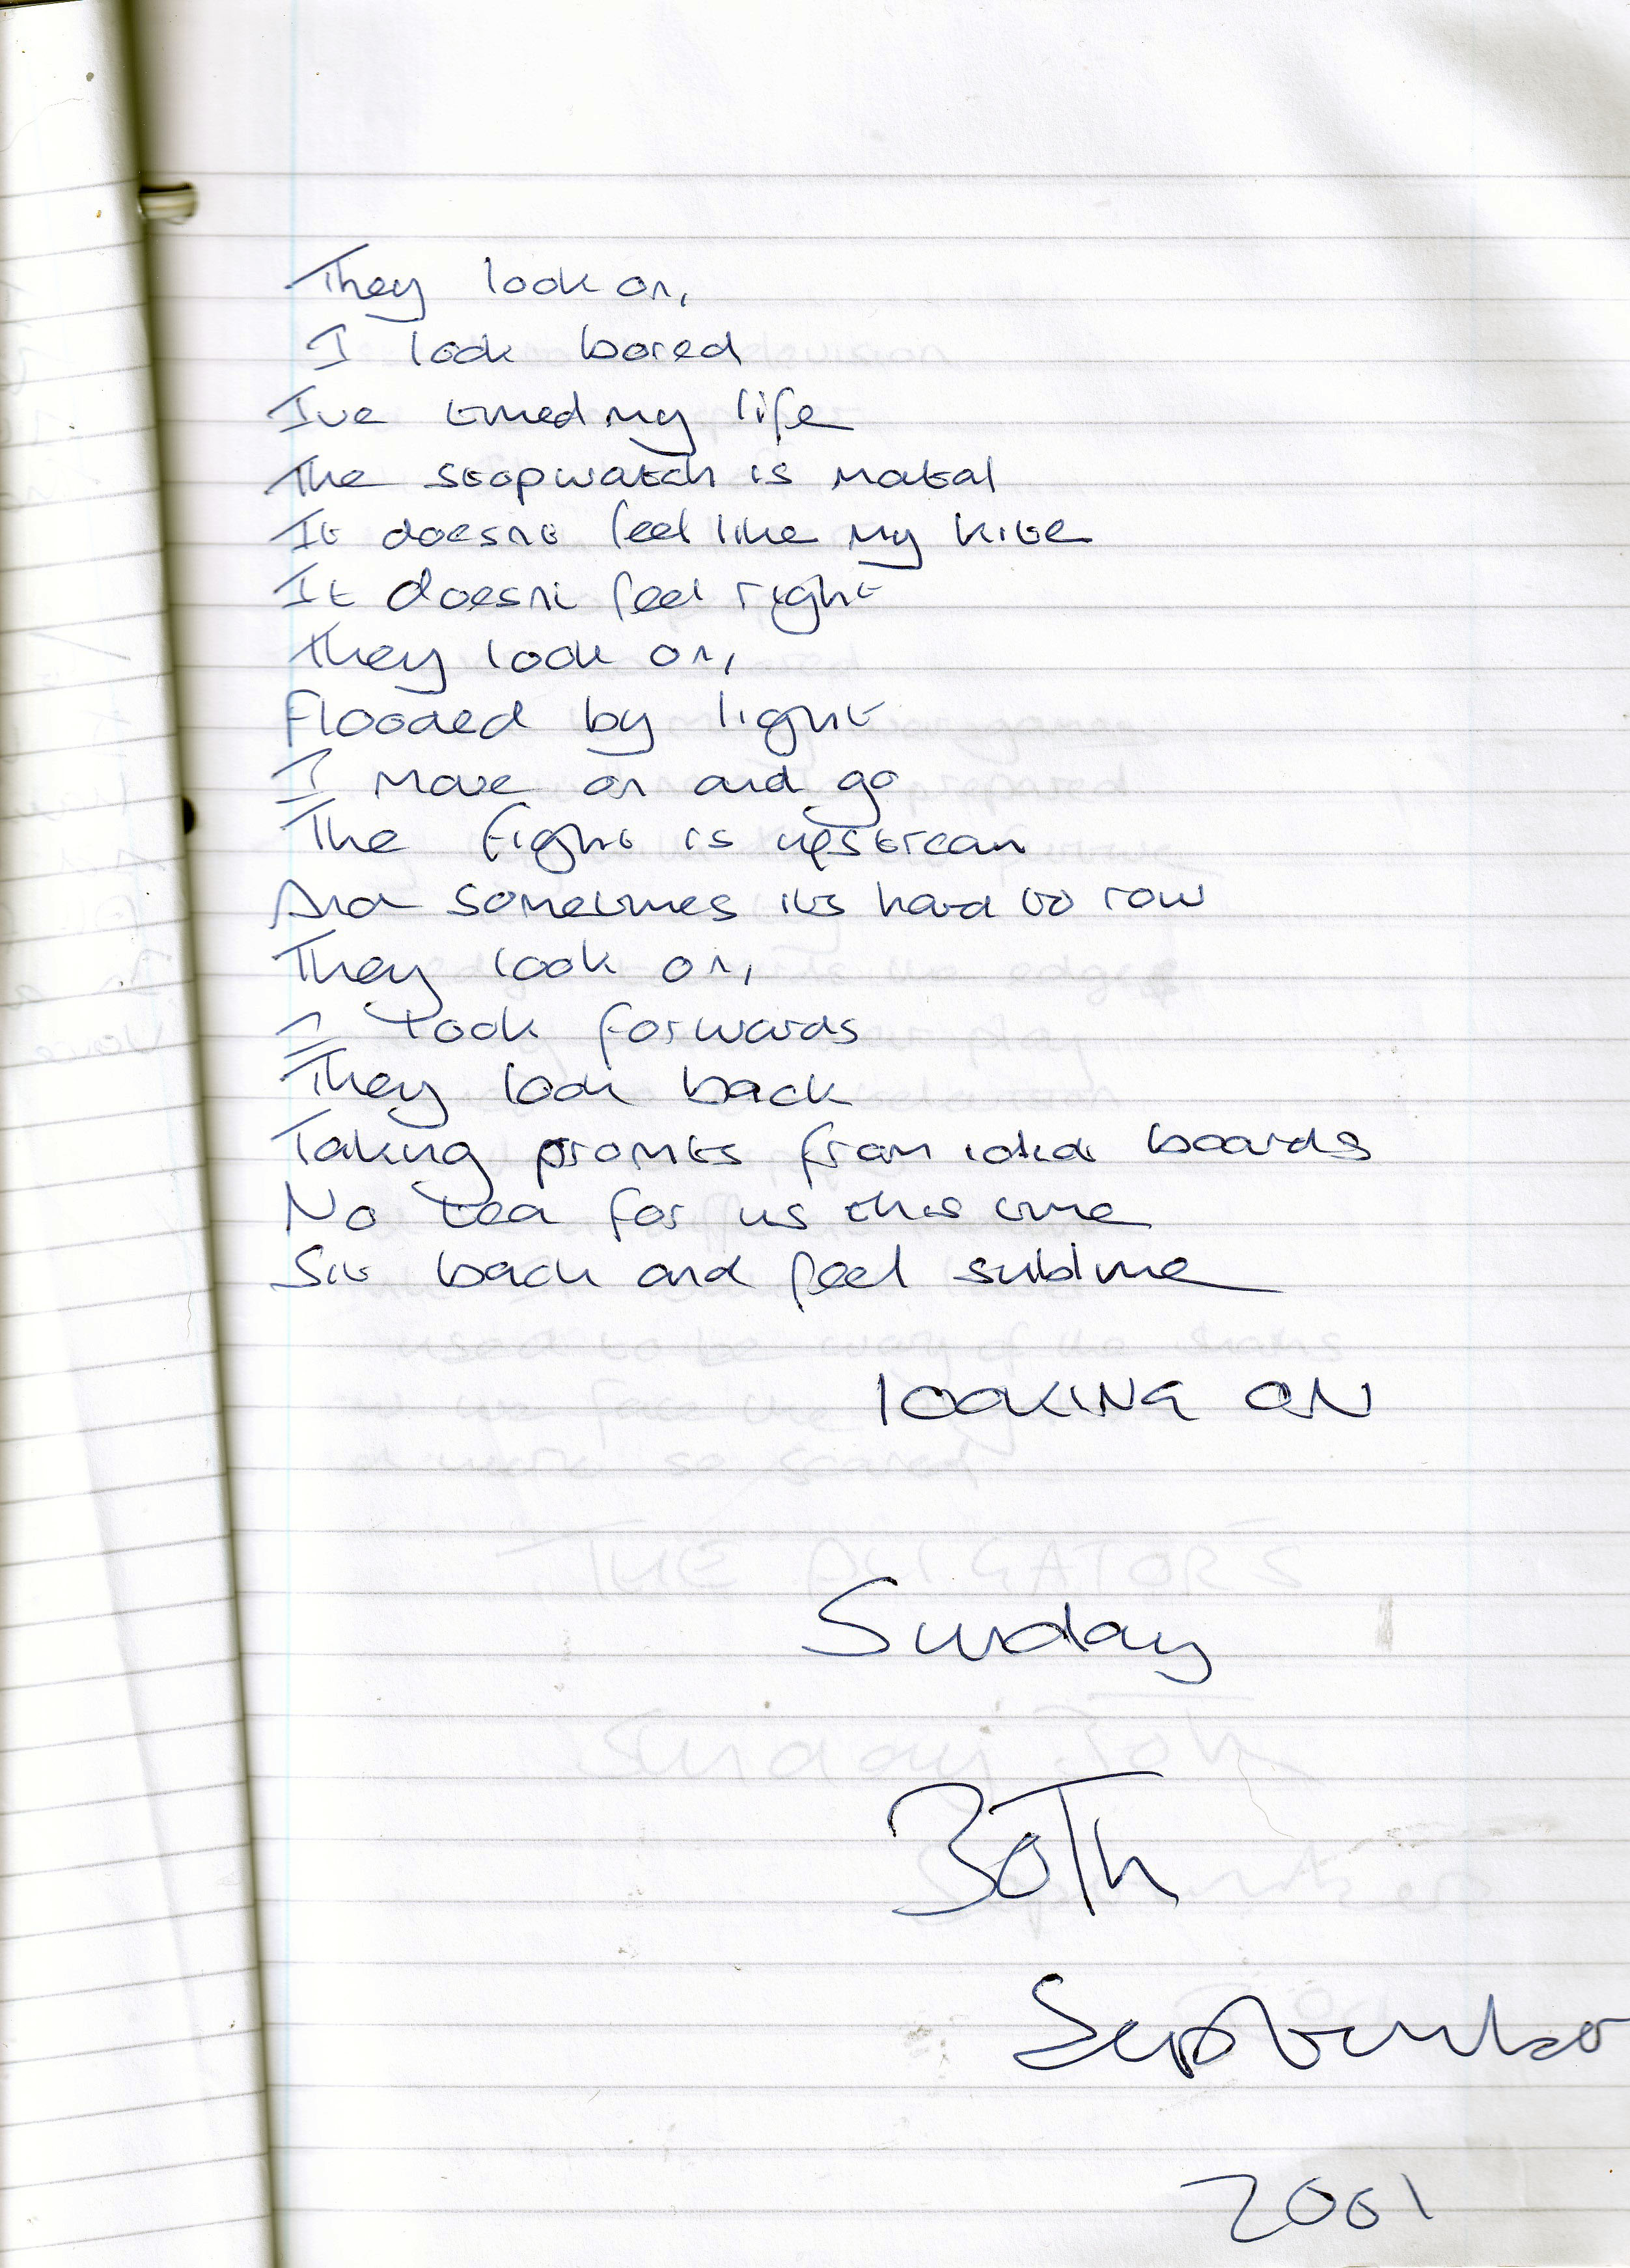 They look on,
I look bored
Ive timed my life
The stopwatch is metal
It doesnt feel like my kite
It doesnt feel right
They look on,
Flooded by light
I move on and go
The fight is upstream
And sometimes its hard to row
They look on,
I look forwards
They look back
Taking promts from boards
No tea for us this time
Sit back and feel sublime
LOOKING ON
Sunday
30Th
September
2001